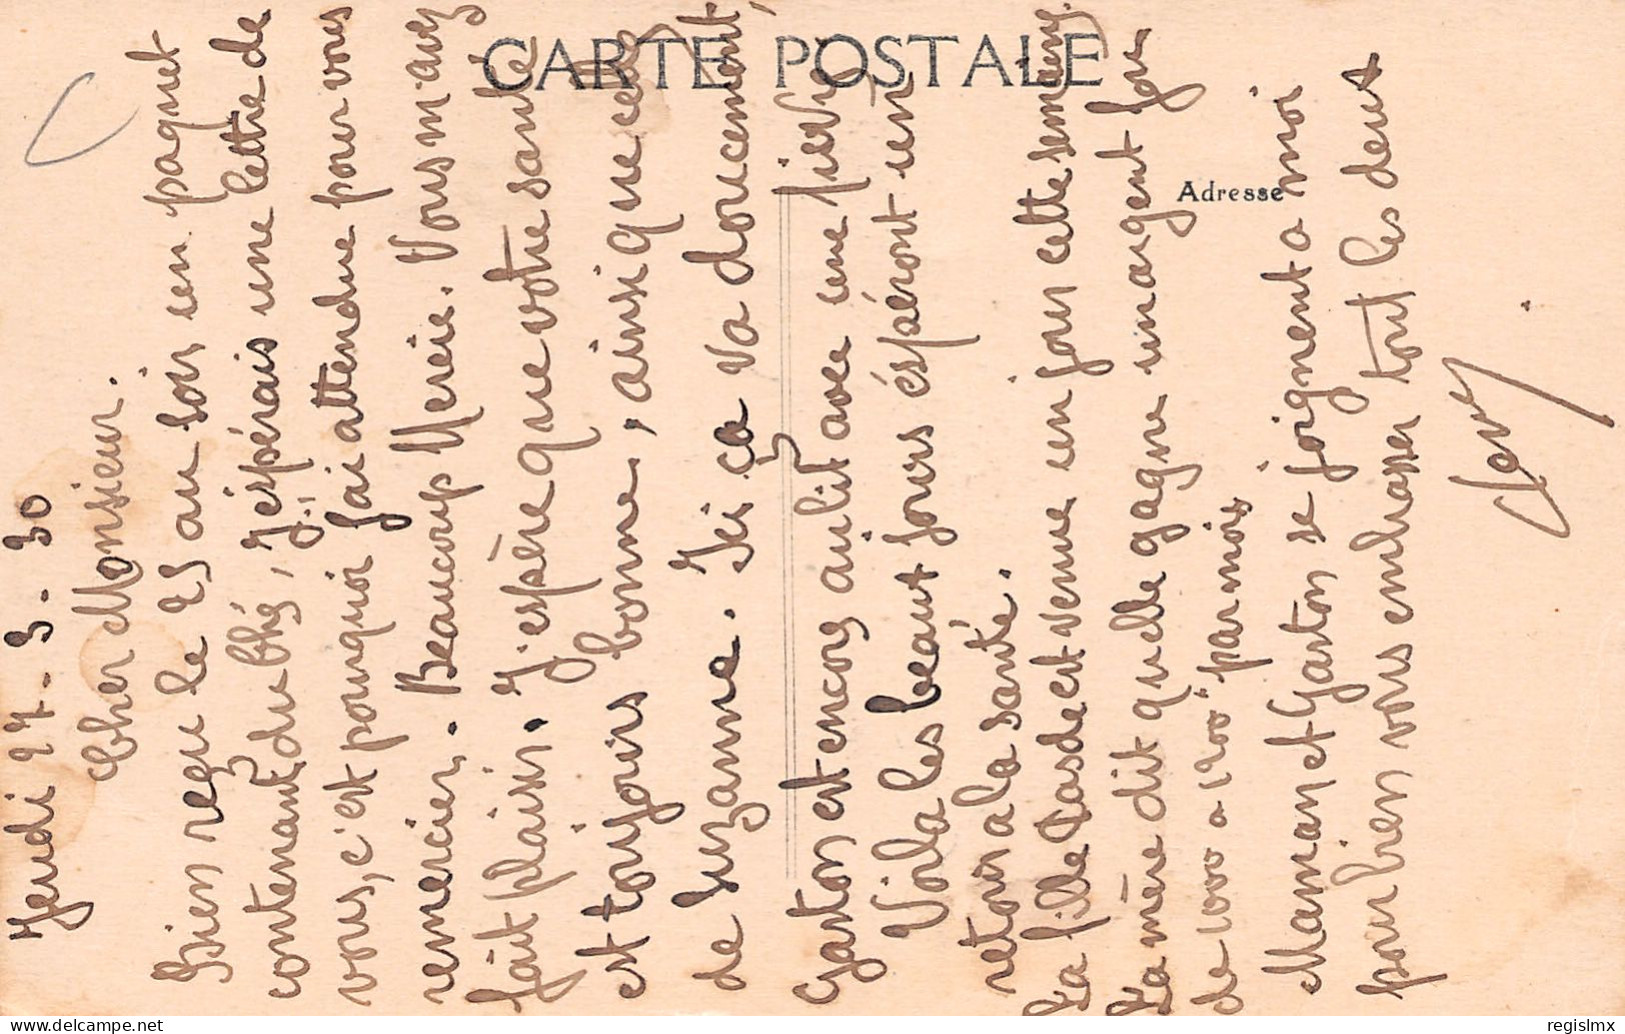 CARTE POSTALE
Adresse
Jeudi 27.3.30
Cher Monsieur.
Bien reçu le 25 au soir un paquet
contenant du thé, J'éspérais une lettre de
vous, c'est pourquoi J'ai attendue pour vous
remercier. Beaucoup Merçie. Vous m'avez
fait plaisir. J'espère que votre santé
est toujours bonne, ainsi que celle
de Suzanne. Ici ça va doucement,
Gaston est encore au lit avec une fièvre
Voila les beaux jours éspéront un
retour a la santé.
La fille est venue un jour cette semaine.
La mère dit qu'elle gagne un argent fou
de 1000 a 1200 par mois
Maman et Gaston se joignent a moi
pour bien vous embrasser tout les deux
regislmx
www.delcampe.net